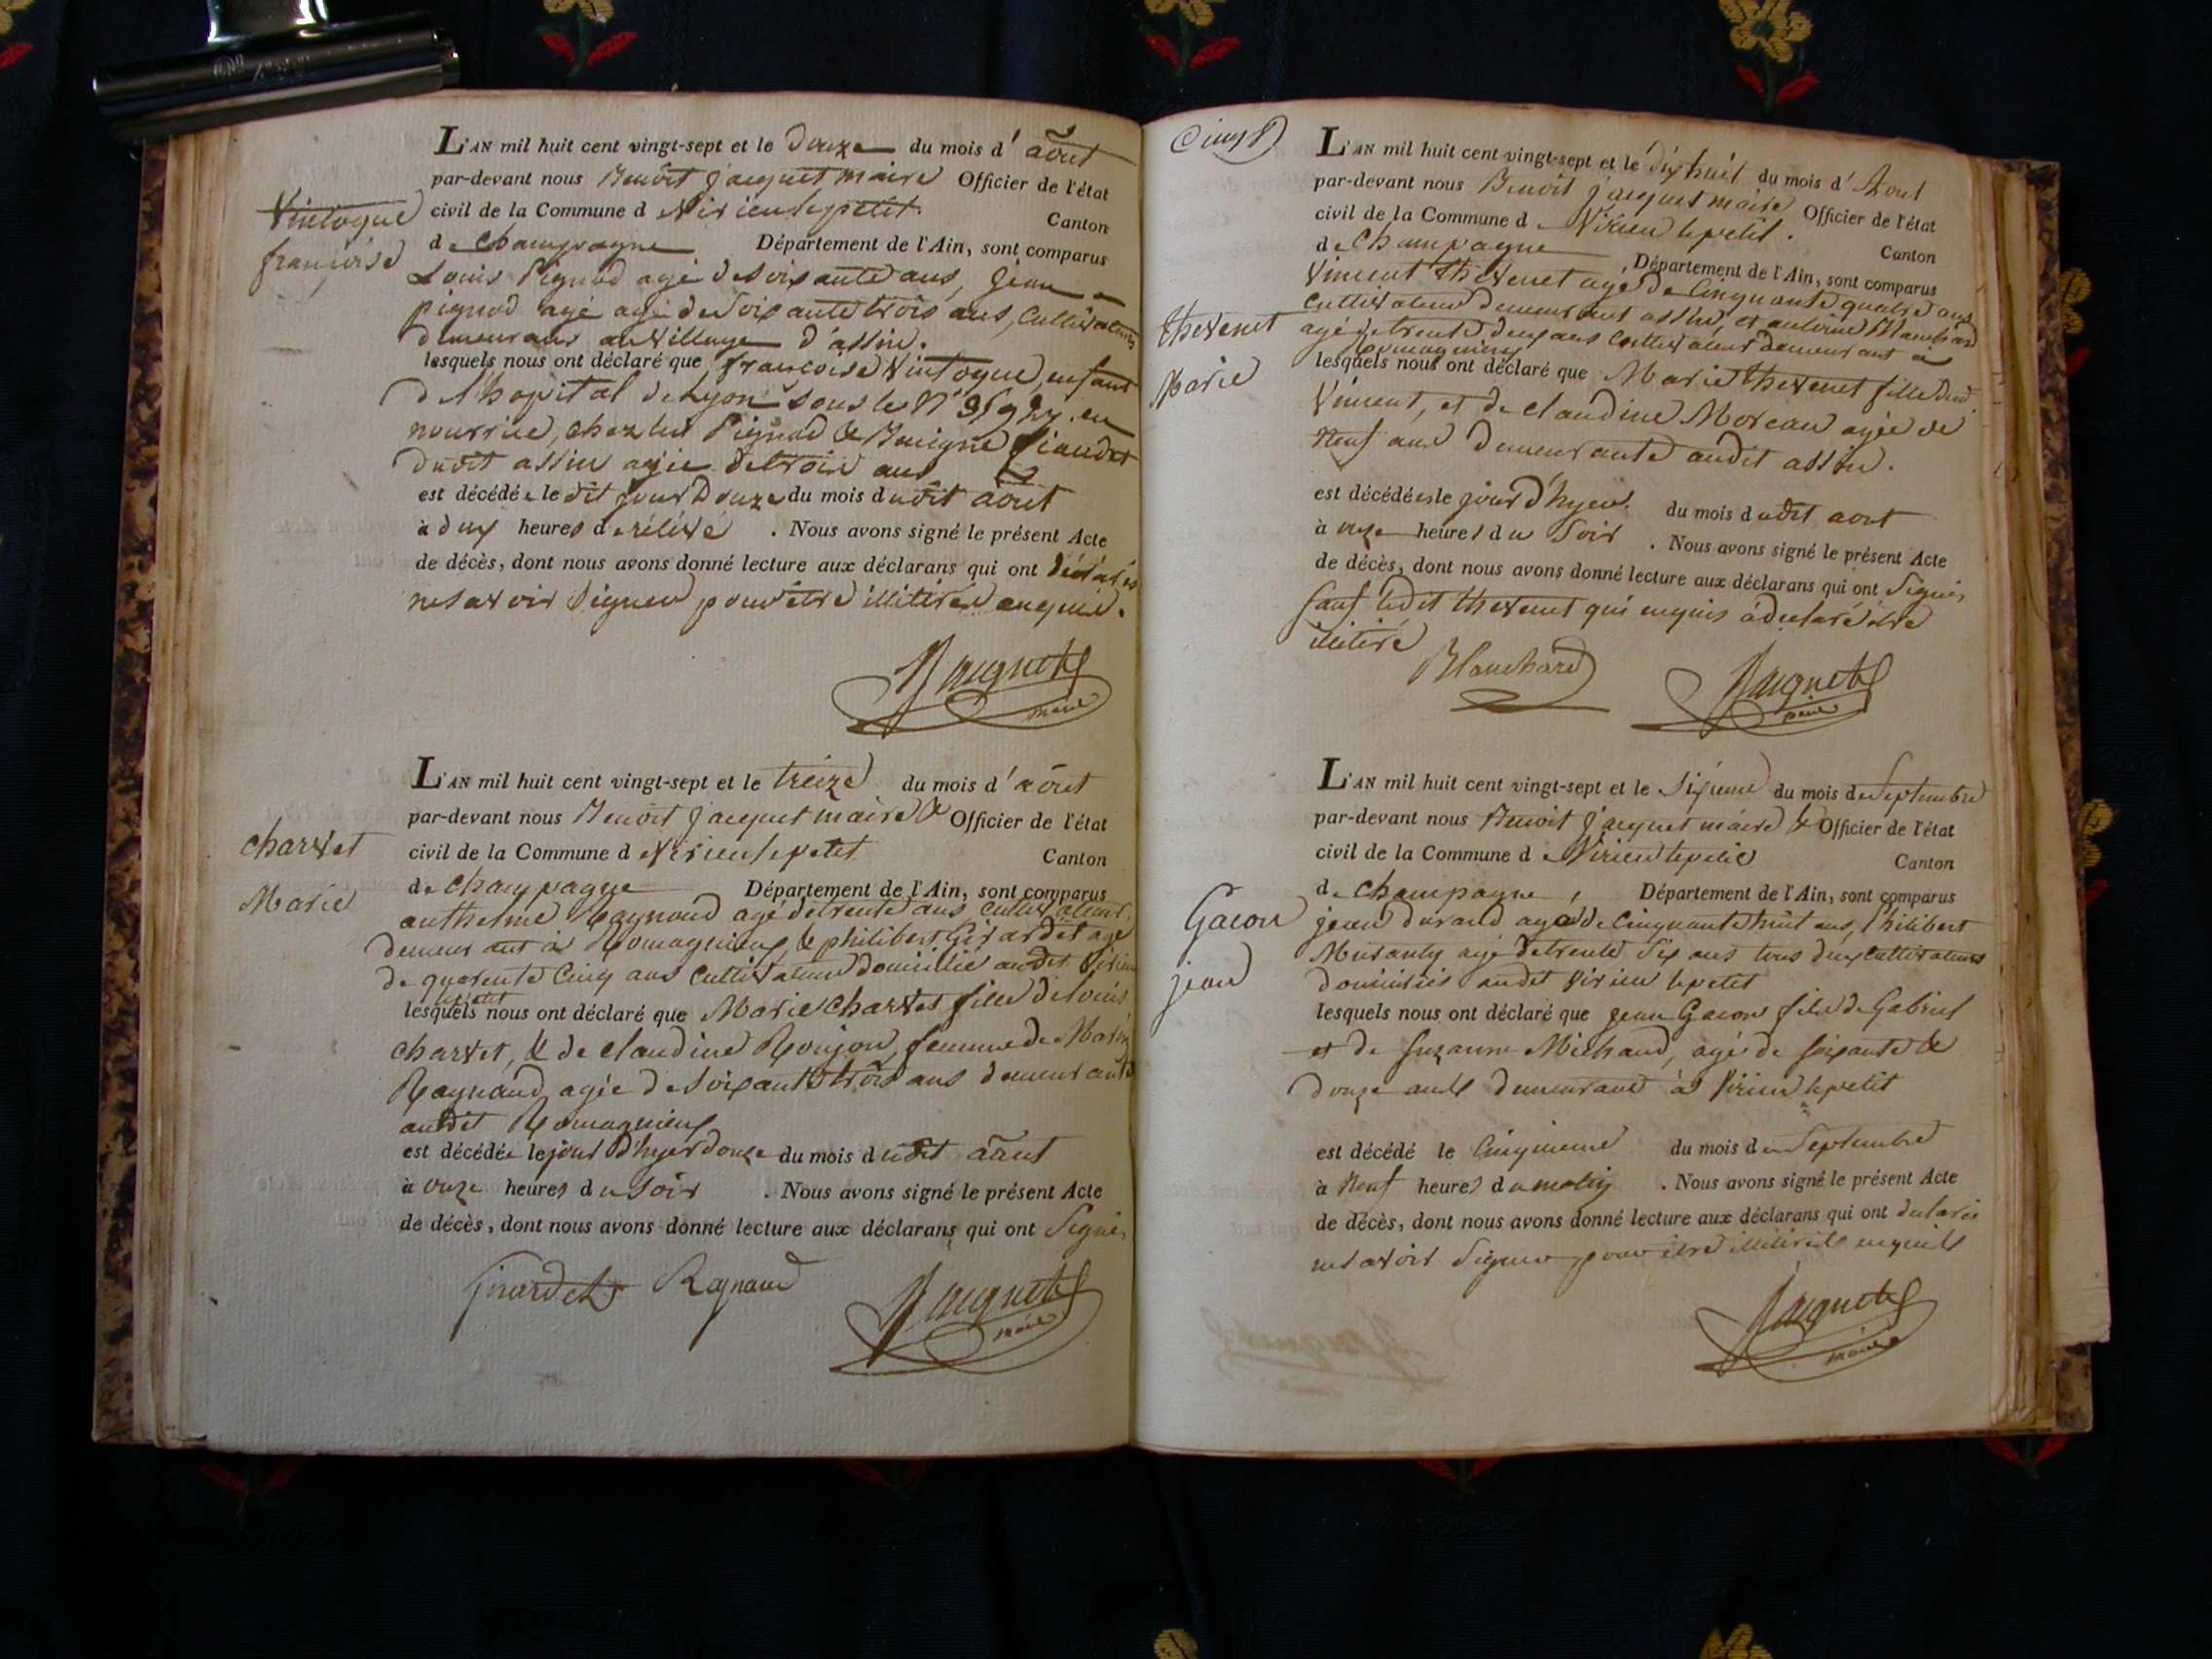 L'AN mil huit cent vingt-sept et le douze du mois d'août
par-devant nous Benoit jacquet maire Officier de l'état
civil de la Commune de Virieu le petit. Canton
de champagne Département de l'Ain, sont comparus
Louis Pignod agé de soixante ans, jean
pignod agé agé de soixante trois ans, cultivateurs
demeurans au village d'assin.
lesquels nous ont déclaré que françoise Vintoque, enfant
de l'hopital de Lyon sous le N° en
nourrice, chez lui Pignod &
dudit assin agée de trois ans
est décédée le dit jour Douze du mois dudit aout
à deux heures de rélévé . Nous avons signé le présent Acte
de décès, dont nous avons donné lecture aux déclarans qui ont déclarés
ne savoir signer pour être illitérés enquis.
Jacquet
maire
Vintoque
françoise
L'AN mil huit cent vingt-sept et le treize du mois d'août
par-devant nous Benoit jacquet maire & Officier de l'état
civil de la Commune de Virieu le petit Canton
de champagne Département de l'Ain, sont comparus
anthelme Raynaud agé de trente ans cultivateur,
demeurant à Romagnieux, & philibert Girardet agé
de quarente cinq ans cultivateur domicilié audit Virieu
le petit
lesquels nous ont déclaré que Marie charvet fille de louis
charvet, & de claudine Roujon, femme de Marin
Raynaud agée de soixante trois ans demeurante
audit Romagnieux
est décédée le jour d'hyer douze du mois dudit août
à onze heures du soir . Nous avons signé le présent Acte
de décès, dont nous avons donné lecture aux déclarans qui ont signés
girardet Raynaud Jacquet
maire
charvet
Marie
L'AN mil huit cent vingt-sept et le dix huit du mois d'Aout
par-devant nous Benoit jacquet maire Officier de l'état
civil de la Commune de Virieu le petit. Canton
de champagne, Département de l'Ain, sont comparus
Vincent thevenet agé de cinquante quatre ans
cultivateur demeurant assin, et antoine Blanchard
agé de trente deux ans cultivateur demeurant à
Romagnieux
lesquels nous ont déclaré que Marie thevenet fille dud.
Vincent, et de claudine Moreau agée de
neuf ans demeurante audit assin.
est décédée le jour d'hyer. du mois dudit aout
à onze heures du soir . Nous avons signé le présent Acte
de décès, dont nous avons donné lecture aux déclarans qui ont signés
sauf ledit thevenet qui enquis à déclaré être
illitéré
Blanchard Jacquet
maire
thevenet
Marie
L'AN mil huit cent vingt-sept et le sixieme du mois de septembre
par-devant nous Benoit jacquet maire & Officier de l'état
civil de la Commune de Virieu le petit Canton
de champagne, Département de l'Ain, sont comparus
jean durand agé de cinquante huit ans, Philibert
agé de trente six ans tous deux cultivateurs
domiciliés audit Virieu le petit
lesquels nous ont déclaré que jean Gacon fils de Gabriel
et de suzanne Michaud, agé de soixante &
douze ans demeurant à Virieu le petit
est décédé le cinquieme du mois de septembre
à neuf heures du matin . Nous avons signé le présent Acte
de décès, dont nous avons donné lecture aux déclarans qui ont declarés
ne savoir signer pour être illitérés enquis
Jacquet
maire
Gacon
jean